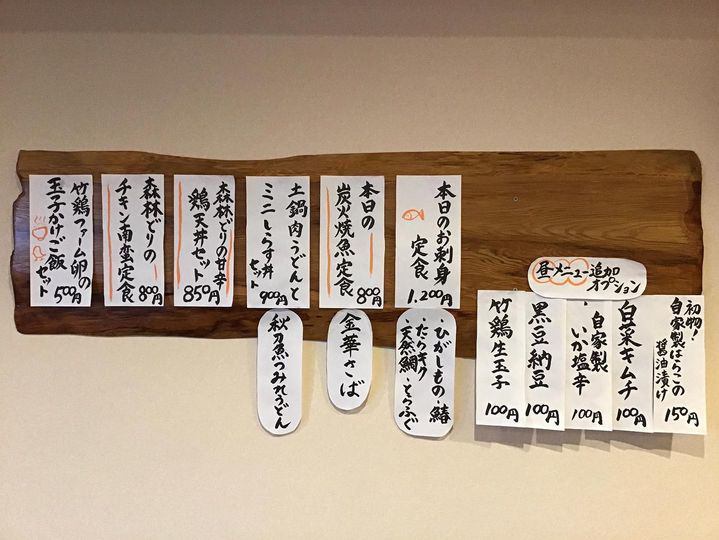 初物!
自家製はらこの
醤油漬け
150円
白菜キムチ
100円
自家製
いか塩辛
100円
黒豆納豆
100円
竹鶏生玉子
100円
昼メニュー追加
オプション
本日のお刺身
定食
1,200円
・ひがしもの・鰆
・たらキク
・天然鯛・とらふぐ
本日の
炭火焼魚定食
800円
金華さば
土鍋肉うどんと
ミニしらす丼
セット
900円
秋刀魚つみれうどん
森林どりの甘辛
鶏天丼セット
850円
森林どりの
チキン南蛮定食
800円
竹鶏ファーム卵の
玉子かけご飯
セット
500円